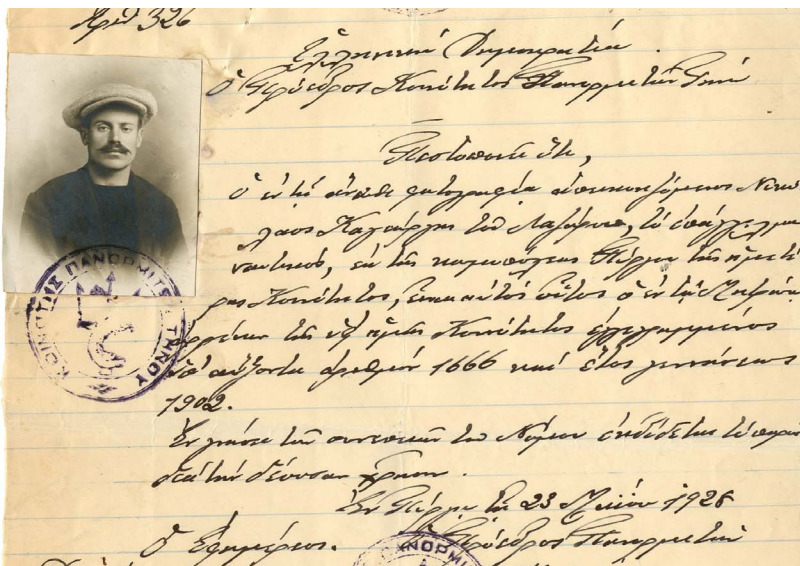 Ἀριθ 326
Ἑλληνική Δημοκρατία.
Ὁ Πρόεδρος Κοινότητος Πανορμιτῶν Τήνου
Πιστοποιεῖ ὅτι,
Ὁ ἐν τῇ ἄνωθι φωτογραφίᾳ ἀπεικονιζόμενος Νικό
λαος τοῦ τό ἐπάγγελμα
ναυτικός, ἐκ τῆς κωμοπόλεως Πύργου τῆς ἡμετέ
ρας Κοινότητος, εἶναι αὐτός οὗτος ὁ ἐν τῷ Μητρώῳ
Ἀρρένων τῆς ὑφ' ἡμᾶς Κοινότητος ἐγγεγραμμένος
ὑπ' αὔξοντα ἀριθμόν 1666 καί ἔτος γεννήσεως
1902.
τῶν συνεπειῶν τοῦ Νόμου ἐκδίδεται τό παρόν
διά τήν δέουσαν χρῆσιν.
Ἐν Πύργῳ τῇ 23 Μαΐου 1928
Ὁ Ἐφημέριος. Ὁ Πρόεδρος Πανορμιτῶν
ΚΟΙΝΟΤΗΣ ΠΑΝΟΡΜΙΤΩΝ ΤΗΝΟΥ
ΠΑΝΟΡΜ